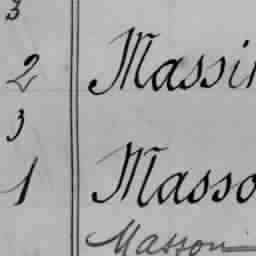 3
2 Massin
3
1 Masso
Masson